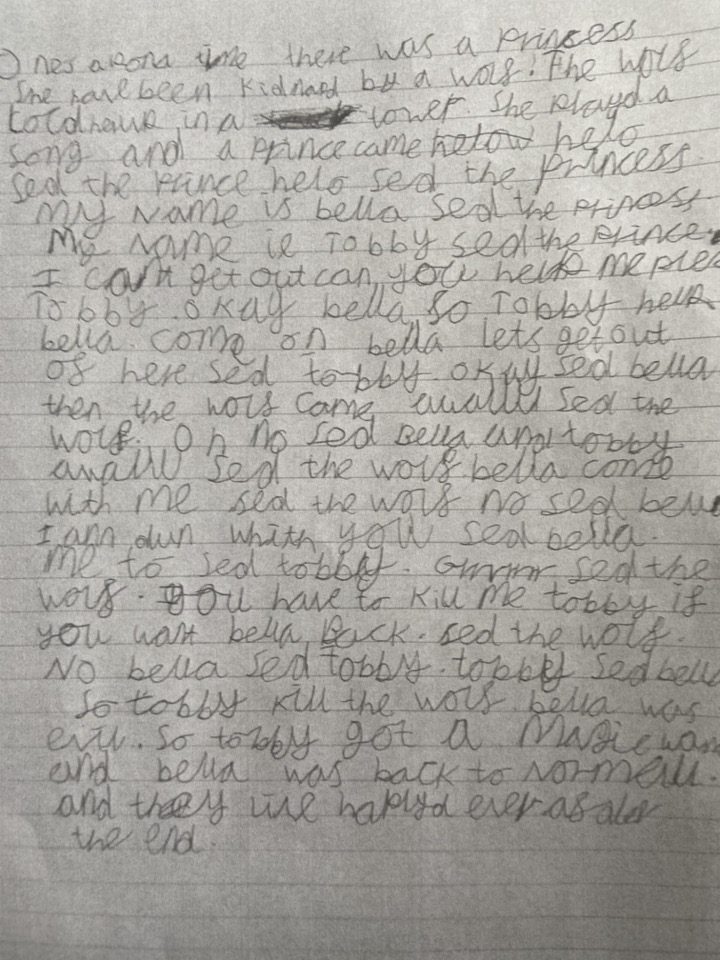 Ones apona time there was a Princess
She have been Kidnapd by a wolf. The wolf
locd heur in a tower. She playd a
song and a Prince came helo
sed the Prince helo sed the princess.
My Name is bella sed the princess
My name is Tobby sed the Prince.
I can't get out can you help me ples
Tobby. okay bella, so Tobby help
bella. come on bella lets get out
of here sed tobby. okay sed bella
then the wolf came awallll sed the
wolf. Oh No sed Bella and tobby
awallll sed the wolf. bella come
with me sed the wolf No sed bella
I am dun whith you sed bella.
me to sed tobby. Grrrrr sed the
wolf. you have to kill me tobby if
you want bella back. sed the wolf.
No bella sed tobby. tobby sed bella
so tobby kill the wolf. bella was
evil. so tobby got a Magic wan
and bella was back to normell.
and they live haplyd ever afder
the end.